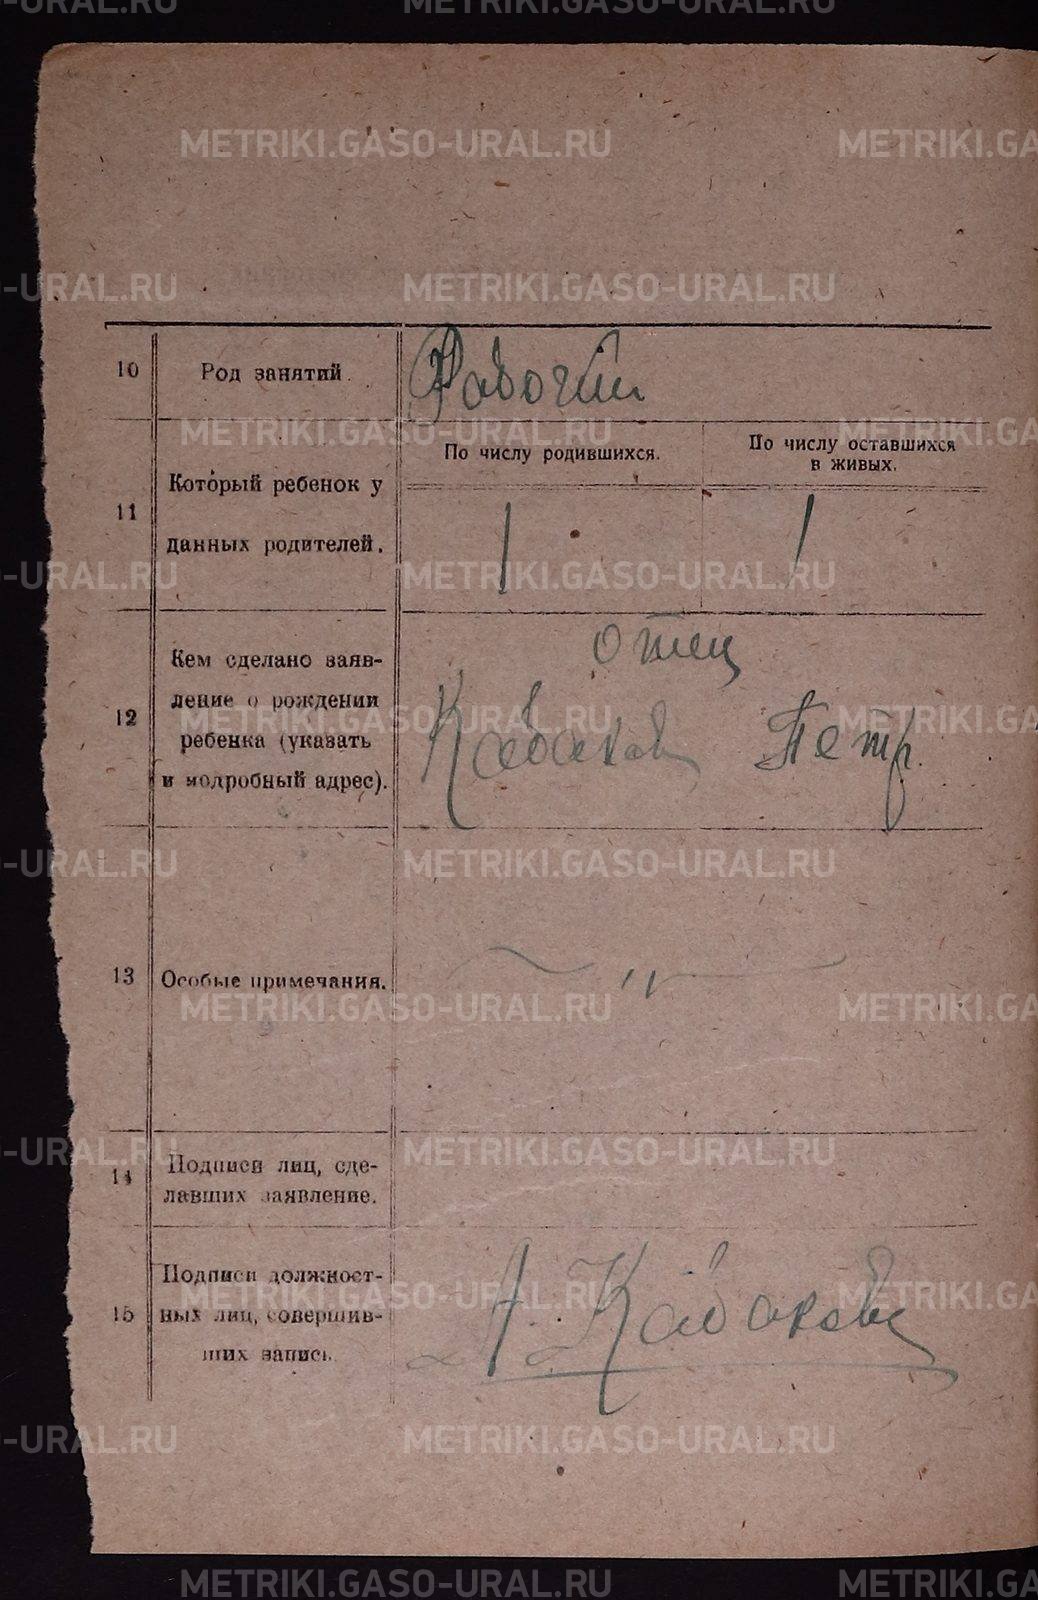 10 Род занятий. Рабочий
11 Который ребенок у данных родителей.
По числу родившихся.
По числу оставшихся
в живых.
1 1
отец
12 Кем сделано заяв-
ление о рождении
ребенка (указать
и подробный адрес).
Кабаков Петр.
13 Особые примечания.
14 Подписи лиц, сде-
лавших заявление.
15 Подписи должност-
ных лиц, совершив-
ших запись.
А. Кабаков
METRIKI.GASO-URAL.RU